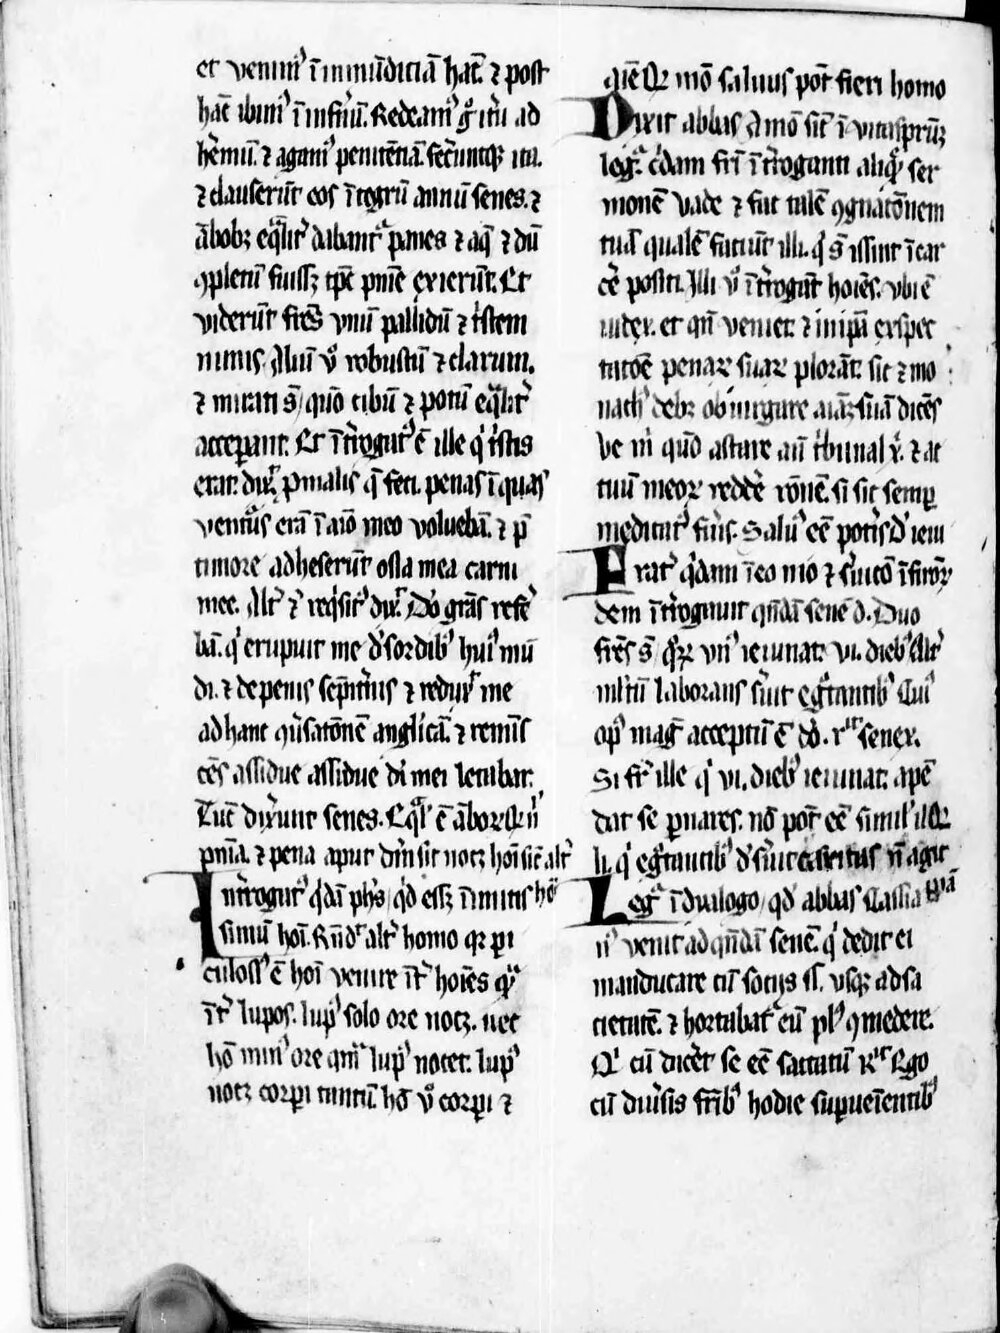 et venim᷒ ī inmūditiā hāc. ⁊ post
hāc ibim᷒ ī infnū. Redeam᷒ gͦ itͥū ad
hͤmū. ⁊ agam᷒ penitētiā. fecͤuntqꝫ ita.
⁊ clauserūt eos ītegrū annū senes. ⁊
ābobꝫ eqͣlitͥ dabantͬ panes ⁊ aq̄ ⁊ dū
ꝯpletū fuissꝫ tꝑe pnīe exierūt. Et
viderūt frēs vnū pallidū ⁊ tͥstem
nimis. Aliū vͦ robustū ⁊ clarum.
⁊ mirati s̄ quō cibū ⁊ potū eqͣlitͥ
acceperant. Et ītͤrogatͬ ē ille qͥ tͥstis
erat. dix̄ p malis q̄ feci. penas ī quas
ventͧus erā ī aīo meo voluebā. ⁊ p̄
timore adheserūt ossa mea carni
mee. Altͬ ⁊ reqͥsitͬ dix̄. Deo grās refe
bā. qͥ eripuit me d̕ sordibꝫ hui᷒ mū
di. ⁊ de penis sēpitͤnis ⁊ redux̄ me
ad hanc ꝯūsatōnē anglicā. ⁊ remīs
cēs assidue assidue dī mei letabar.
Tūc dixͤunt senes. Eqͣl᷒ ē āboꝝ
pnīa. ⁊ pena apud dm̄ sit nocꝫ hoī sic altͬ
Intͤrogatͬ qͥdā phͦs qͥd essꝫ inimicissimū hoī.
Rn̄dͭ altͬ homo qꝛ pi
culosi᷒ ē hoī venire ītͬ hoīes qͣ
ītͬ lupos. lup᷒ solo ore nocꝫ. nec
hō min᷒ ore qͣm lup᷒ nocet. lup᷒
nocꝫ corpi tantū. hō vͦ corpi ⁊
aīe Qͦ mō saluus pōt fieri homo
Dixit abbas A mō sic ī vitasprūꝫ
legͬ. cͥdam frī ītͤroganti aliqͣ ser
monē Vade ⁊ fac talē ꝯgnatōnem
tuā qualē faciūt illi. qͥ s̄ issint ī car
cē positi. Illi vͦ ītͤrogāt hoīes. vbi ē
iudex. et qn̄ veniet. ⁊ in ipā exspec
tatōē penaꝝ suaꝝ plorāt. sic ⁊ mo
nach᷒ debꝫ obiurgare aīaꝫ suā dicēs
Ve m̄ quō astare an̄ tͥbunal xͥ. ⁊ ac
tuū meoꝝ reddͤe rōnē. si sic semp
meditatͥ fuīs. Salu᷒ eē potͤis D ieiu
Fratͬ qͥdam ī eo mō ⁊ suicō infirōꝝ
dem ītͤrogauit qn̄dā senē d. Duo
frēs s̄ qͦꝝ vn᷒ ieiunat. vi. dieb᷒ Altͬ
mltū laborans suit egͦtantib᷒ Cui᷒
op᷒ magͥ acceptū ē dō. rͭ senex.
Si frͬ ille qͥ vi. dieb᷒ ieiunat. apē
dat se p nares. nō pōt eē simil᷒ il
li. qͥ egͦtantib᷒ d̕suit caritatis n̄ agit
Legͬ ī dyalogo qd̕ abbas Cassia
n᷒ venit ad qn̄dā senē. qͥ dedit ei
manducare cū socijs s. vsqꝫ ad sa
cietatē. ⁊ hortabatͬ eū pl᷒ ꝯmedere.
Qͥ cū dicͤet se eē saciatū Rͭ Ego
cū diūsis frīb᷒ hodie supueīentib᷒